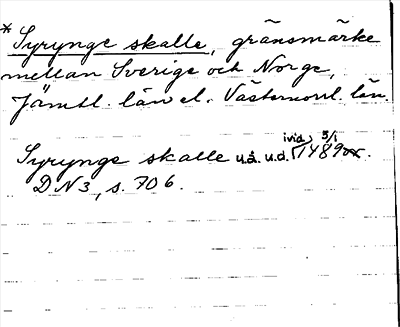 * Syrynge skalle, gränsmärke
mellan Sverige och Norge,
Jämtl. län el. Västernorrl. län.
Syrynge skalle u.å. u.d. (ivid. 5/1 1489
DN3, s. 706.